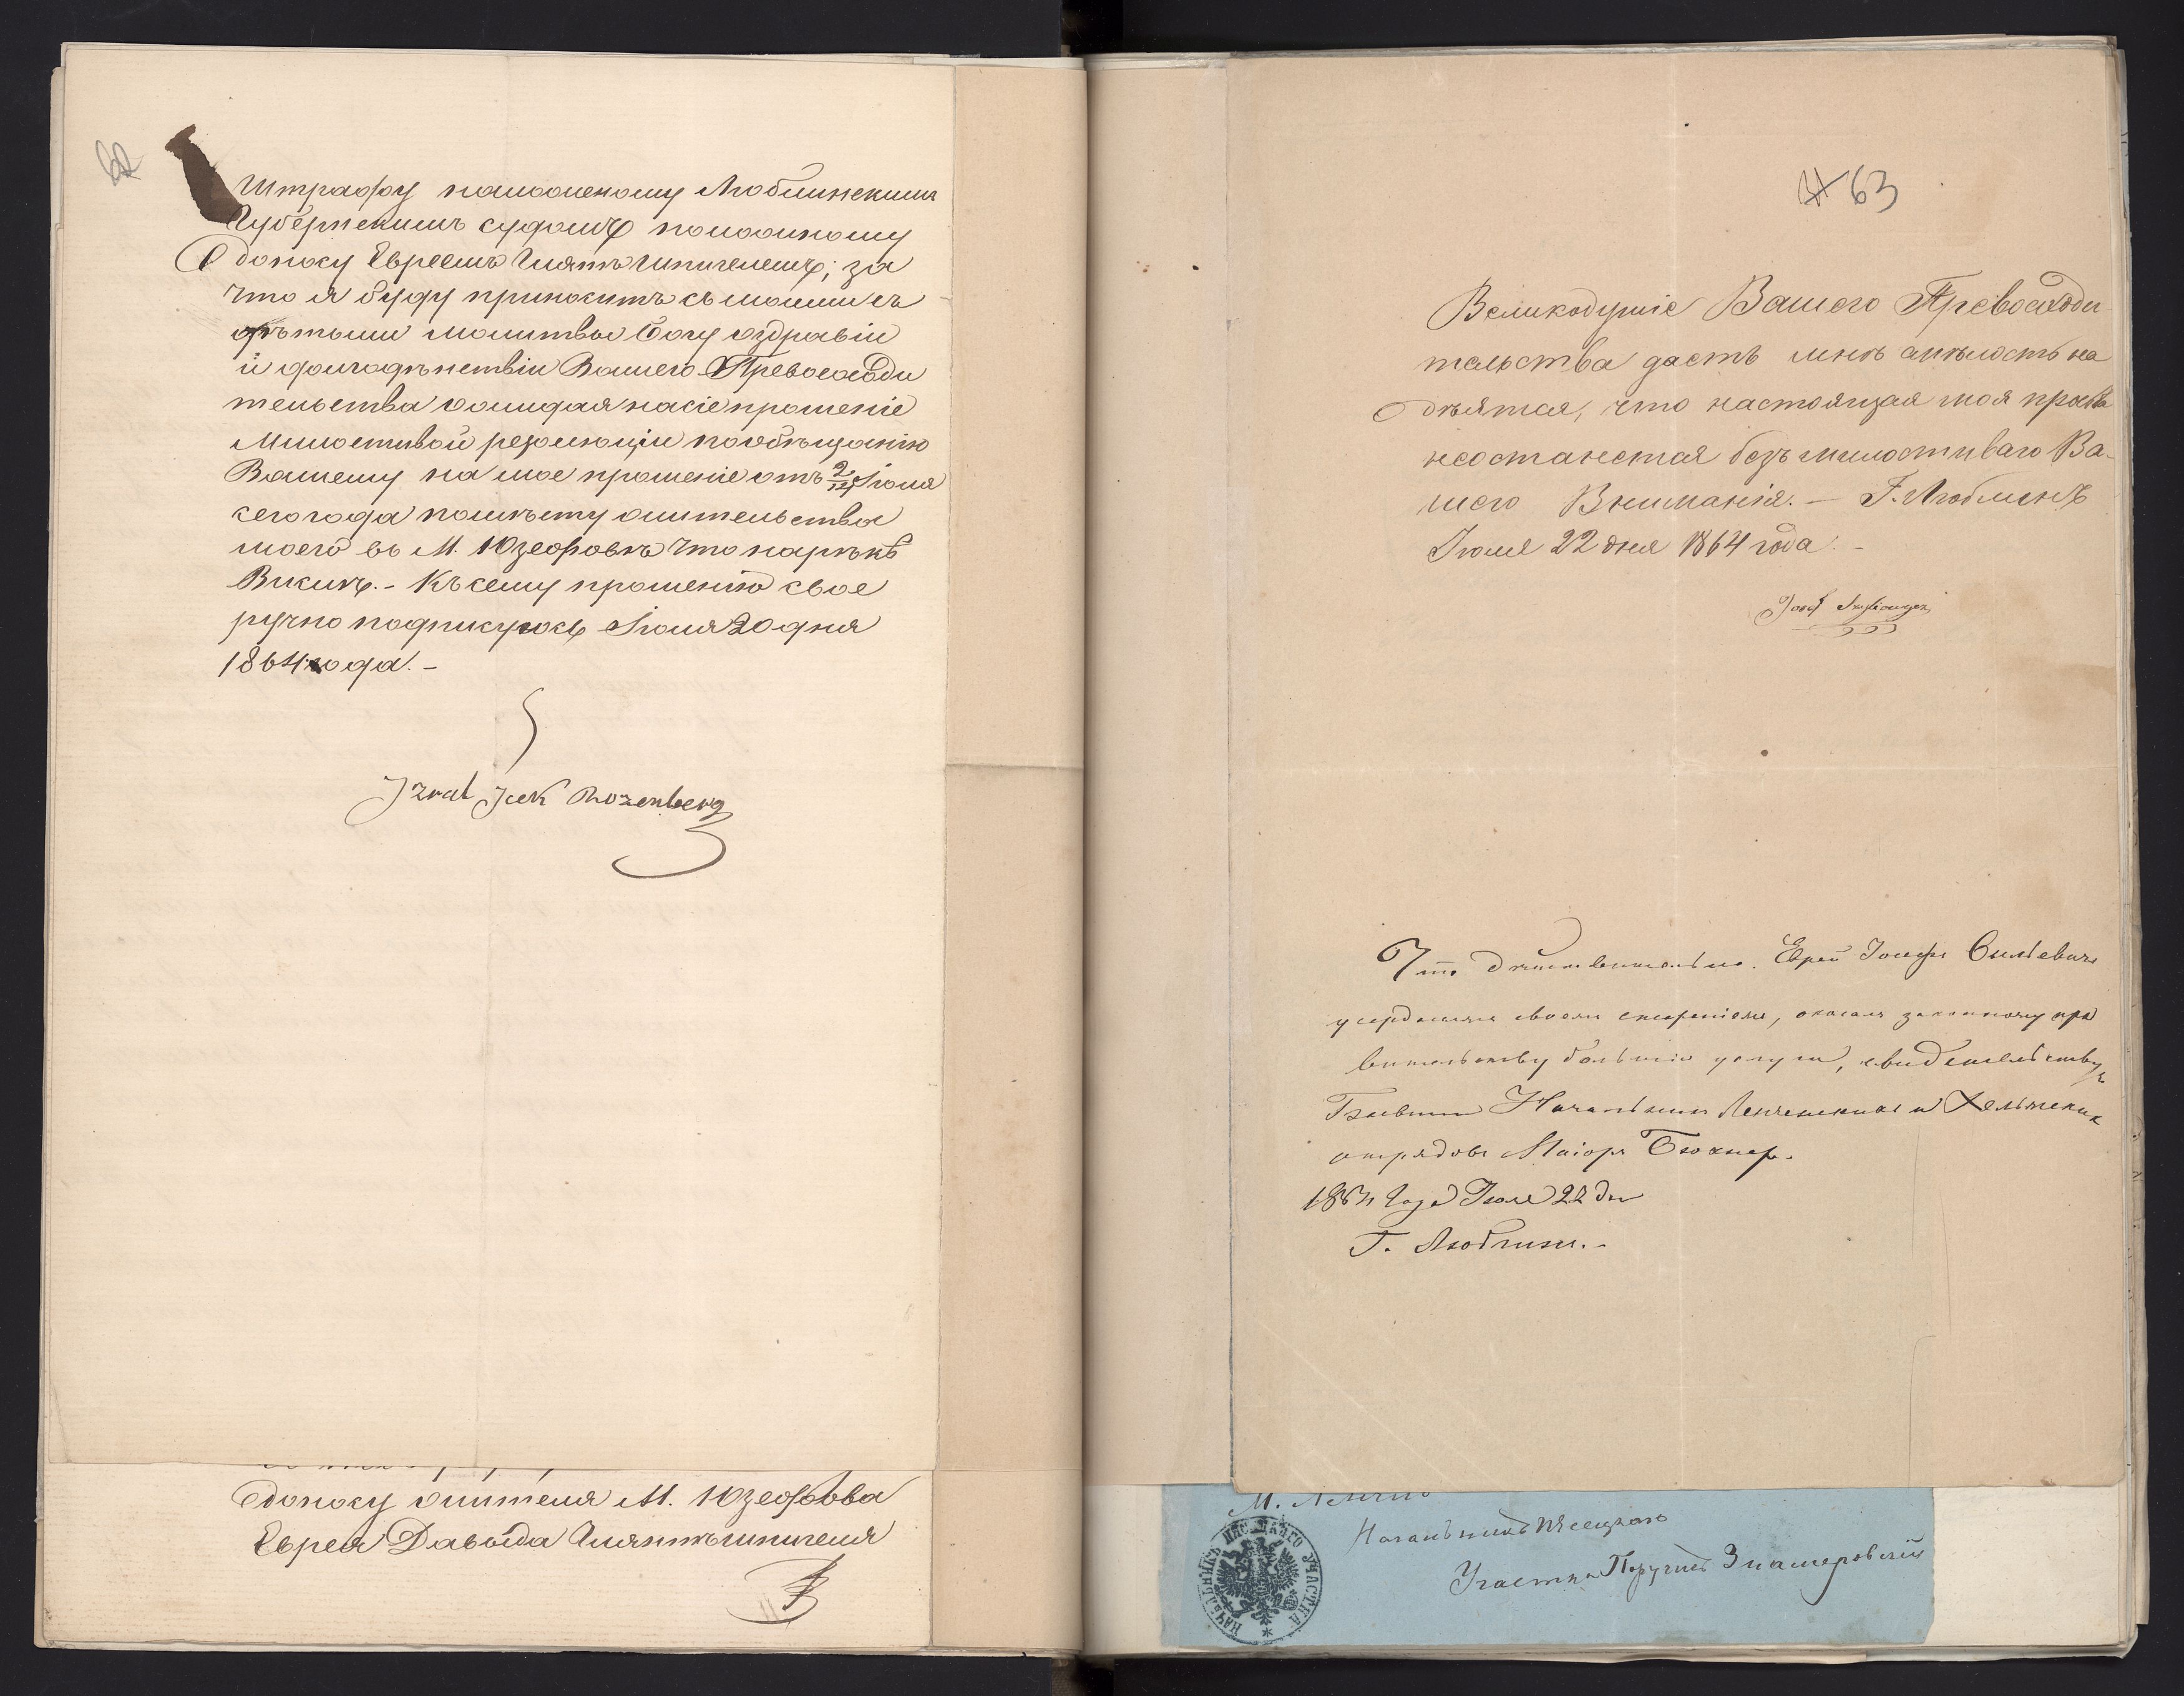 62
Штрафу наложеному Люблинскимъ
Губернскимъ судомъ по ложному
доносу Евреемъ Гляттштигелемъ; за
что я буду приносить съ моими съ
дѣтьми молитвы Богу оздравіи
и долгоденствіи Вашего Превосходи
тельства ожидая насіе прошеніе
Милостивой резолюціи по обѣщанію
Вашему на мое прошеніе отъ 2/14 Іюля
сего года помѣсту жительства
моего въ М. Юзефовѣ что нарѣкѣ
Вислѣ. - Къ сему прошенію свое
ручно подписуюсь Іюля 20 дня
1864 года. -
Izrael Icek Rozenberg
доносу жителя М. Юзефова
Еврея Давыда Гляттштигеля
63
Великодушіе Вашего Превосходи
тельства даетъ мнѣ смѣлость на
дѣятся, что настоящая моя прозба
неостанется безъ милостиваго Ва-
шего Вниманія. - Г. Люблинъ
Іюля 22 дня 1864 года. -
Что дѣйствительно Еврей Іосифъ
усердіемъ своемъ, оказалъ законному пра
вительству большія услуги, свидетельствую
Бывшій Начальникъ Ленчинскихъ и Хелмскихъ
отрядовъ Маіоръ Бюхнер.
1864 Года Іюля 22 дн
Г. Люблинъ. -
Начальникъ Пясецкаго
Участка Поручикъ
НАЧАЛЬНИКЪ ПЯСЕЦКАГО УЧАСТКА *